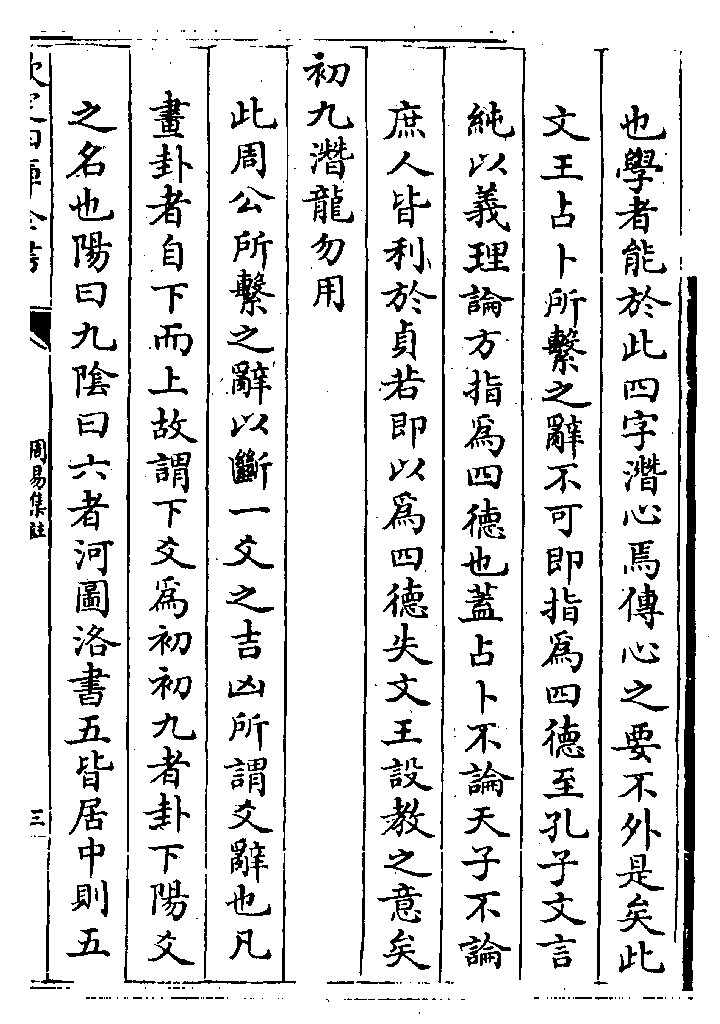 也學者能於此四字潛心焉傳心之要不外是矣此
文王占卜所繫之辭不可即指為四德至孔子文言
純以義理論方指為四德也蓋占卜不論天子不論
庶人皆利於貞若即以為四德失文王設教之意矣
初九潛龍勿用
此周公所繫之辭以斷一爻之吉凶所謂爻辭也凡
畫卦者自下而上故謂下爻為初初九者卦下陽爻
之名也陽曰九陰曰六者河圖洛書五皆居中則五
欽定四庫全書
周易集註
三